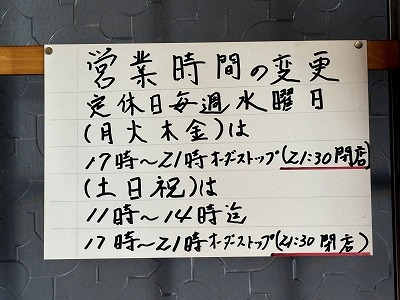 営業時間の変更
定休日毎週水曜日
(月火木金)は
17時~21時オーダーストップ(21:30閉店)
(土日祝)は
11時~14時迄
17時~21時オーダーストップ(21:30閉店)